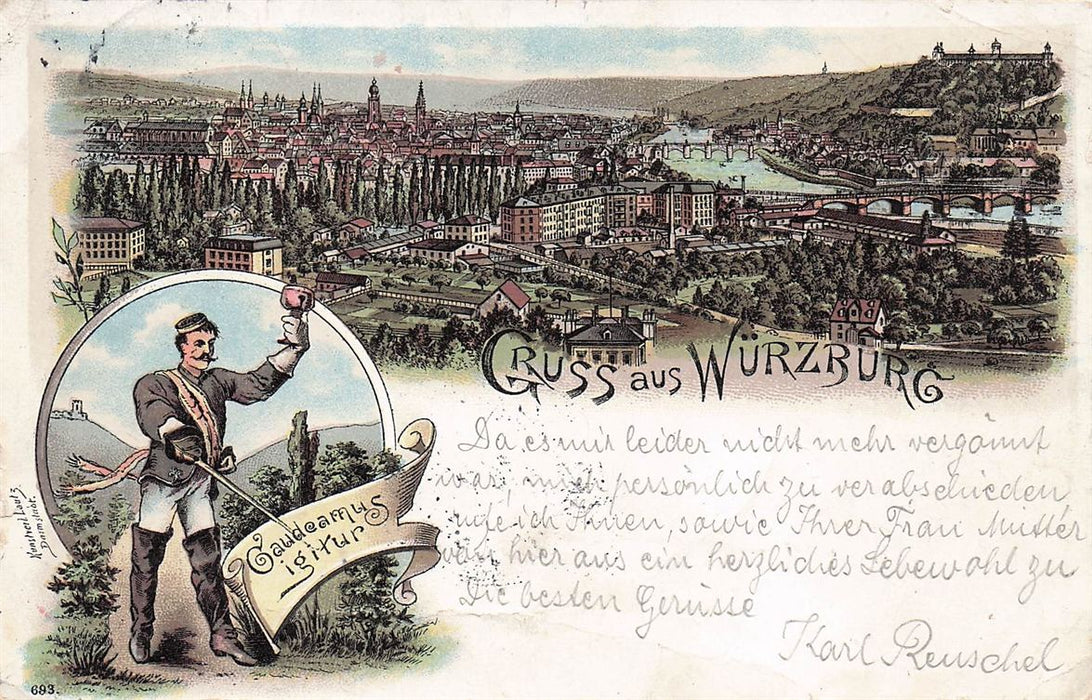 GRUSS AUS WÜRZBURG
Da es mir leider nicht mehr vergönnt
war, mich persönlich zu verabschieden
rufe ich Ihnen, sowie Ihrer Frau Mutter
von hier aus ein herzliches Lebewohl zu
Die besten Gerüsse
Karl Reuschel
Gaudeamus
igitur
Kunstverl. Lautz
Darmstadt.
693.